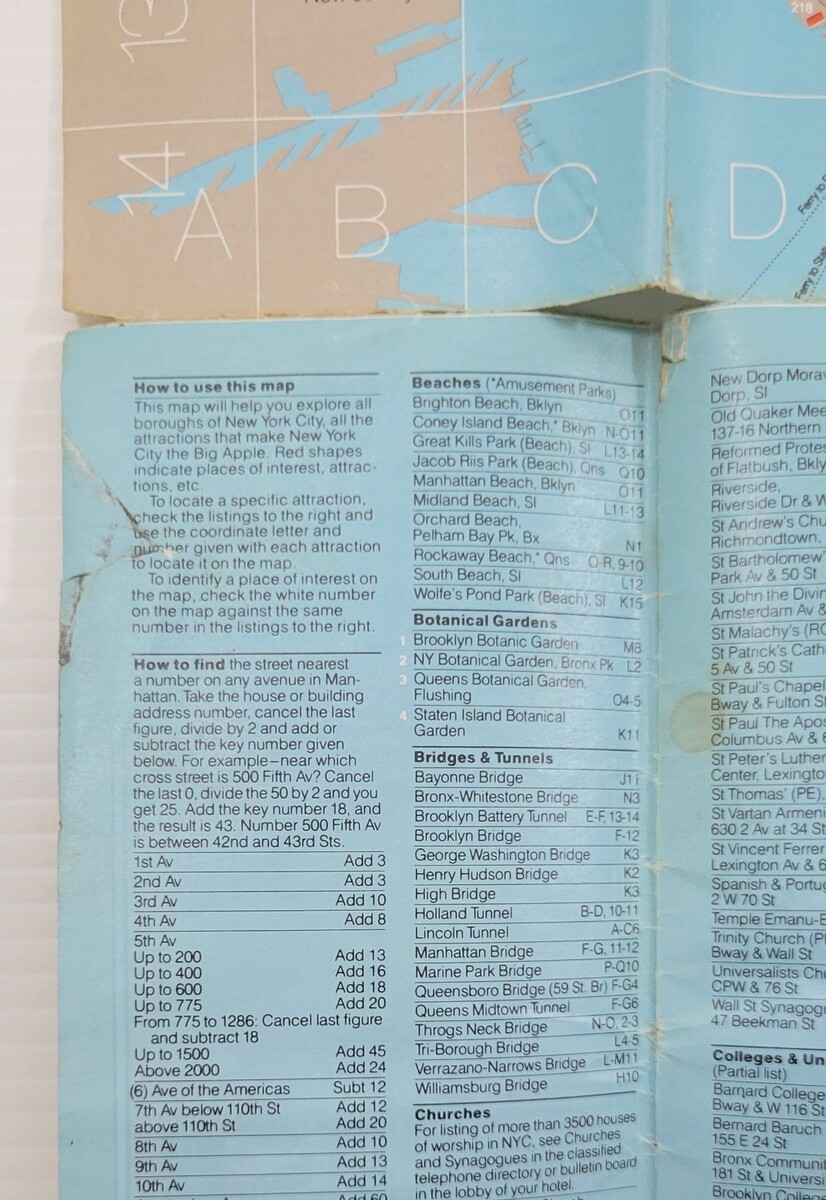 218
13
14
A
B
C
D
Ferry to
Ferry to
How to use this map
This map will help you explore all
boroughs of New York City, all the
attractions that make New York
City the Big Apple. Red shapes
indicate places of interest, attrac-
tions, etc.
To locate a specific attraction,
check the listings to the right and
use the coordinate letter and
number given with each attraction
to locate it on the map.
To identify a place of interest on
the map, check the white number
on the map against the same
number in the listings to the right.
How to find the street nearest
a number on any avenue in Man-
hattan. Take the house or building
address number, cancel the last
figure, divide by 2 and add or
subtract the key number given
below. For example–near which
cross street is 500 Fifth Av? Cancel
the last 0, divide the 50 by 2 and you
get 25. Add the key number 18, and
the result is 43. Number 500 Fifth Av
is between 42nd and 43rd Sts.
1st Av Add 3
2nd Av Add 3
3rd Av Add 10
4th Av Add 8
5th Av
Up to 200 Add 13
Up to 400 Add 16
Up to 600 Add 18
Up to 775 Add 20
From 775 to 1286: Cancel last figure
and subtract 18
Up to 1500 Add 45
Above 2000 Add 24
(6) Ave of the Americas Subt 12
7th Av below 110th St Add 12
above 110th St Add 20
8th Av Add 10
9th Av Add 13
10th Av Add 14
Add 60
Beaches (*Amusement Parks)
Brighton Beach, Bklyn O11
Coney Island Beach,* Bklyn N-O11
Great Kills Park (Beach), SI L13-14
Jacob Riis Park (Beach), Qns Q10
Manhattan Beach, Bklyn O11
Midland Beach, SI L11-13
Orchard Beach,
Pelham Bay Pk, Bx N1
Rockaway Beach,* Qns O-R, 9-10
South Beach, SI L12
Wolfe's Pond Park (Beach), SI K15
Botanical Gardens
1 Brooklyn Botanic Garden M8
2 NY Botanical Garden, Bronx Pk L2
3 Queens Botanical Garden,
Flushing O4-5
4 Staten Island Botanical
Garden K11
Bridges & Tunnels
Bayonne Bridge J11
Bronx-Whitestone Bridge N3
Brooklyn Battery Tunnel E-F, 13-14
Brooklyn Bridge F-12
George Washington Bridge K3
Henry Hudson Bridge K2
High Bridge K3
Holland Tunnel B-D, 10-11
Lincoln Tunnel A-C6
Manhattan Bridge F-G, 11-12
Marine Park Bridge P-Q10
Queensboro Bridge (59 St. Br) F-G4
Queens Midtown Tunnel F-G6
Throgs Neck Bridge N-O, 2-3
Tri-Borough Bridge L4-5
Verrazano-Narrows Bridge L-M11
Williamsburg Bridge H10
Churches
For listing of more than 3500 houses
of worship in NYC, see Churches
and Synagogues in the classified
telephone directory or bulletin board
in the lobby of your hotel.
New Dorp Morav
Dorp, SI
Old Quaker Mee
137-16 Northern
Reformed Protes
of Flatbush, Bkly
Riverside,
Riverside Dr & W
St Andrew's Chu
Richmondtown,
St Bartholomew'
Park Av & 50 St
St John the Divin
Amsterdam Av &
St Malachy's (RC
St Patrick's Cath
5 Av & 50 St
St Paul's Chapel
Bway & Fulton St
St Paul The Apos
Columbus Av & 6
St Peter's Luther
Center, Lexingto
St Thomas' (PE),
St Vartan Armeni
630 2 Av at 34 St
St Vincent Ferrer
Lexington Av & 6
Spanish & Portug
2 W 70 St
Temple Emanu-E
Trinity Church (P
Bway & Wall St
Universalists Chu
CPW & 76 St
Wall St Synagogu
47 Beekman St
Colleges & Un
(Partial list)
Barnard College
Bway & W 116 St
Bernard Baruch
155 E 24 St
Bronx Communi
181 St & Universi
Brooklyn Colleg